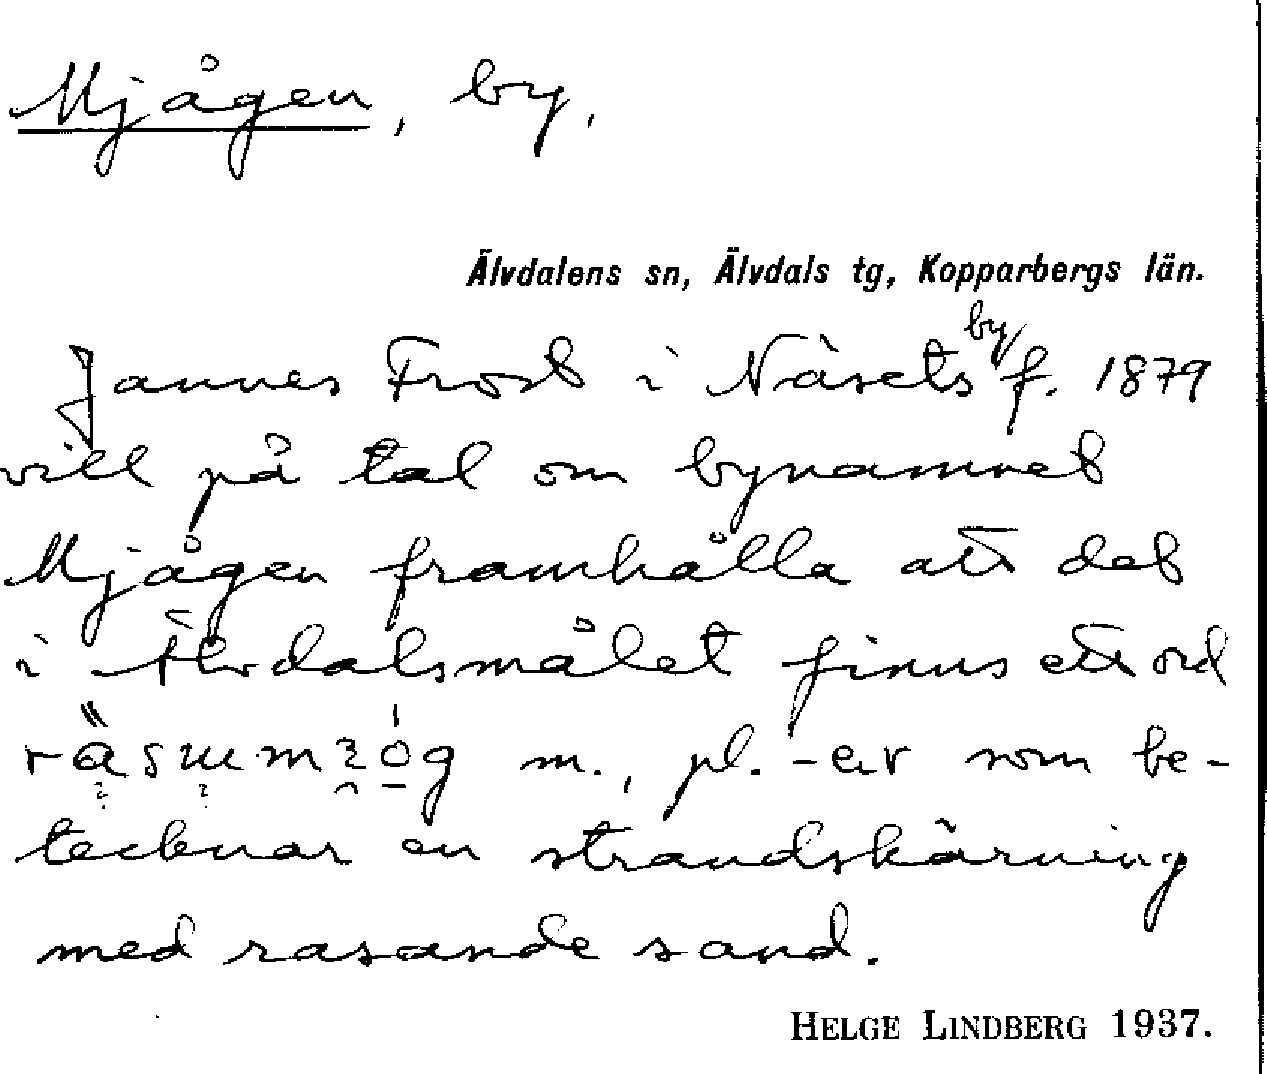 Mjågen, by,
Älvdalens sn, Älvdals tg, Kopparbergs län.
Jannes Frost i Näsets by f. 1879
vill på tal om bynamnet
Mjågen framhålla att det
i Älvdalsmålet finns ett ord
m., pl. -ær som be-
tecknar en strandskärning
med rasande sand.
HELGE LINDBERG 1937.